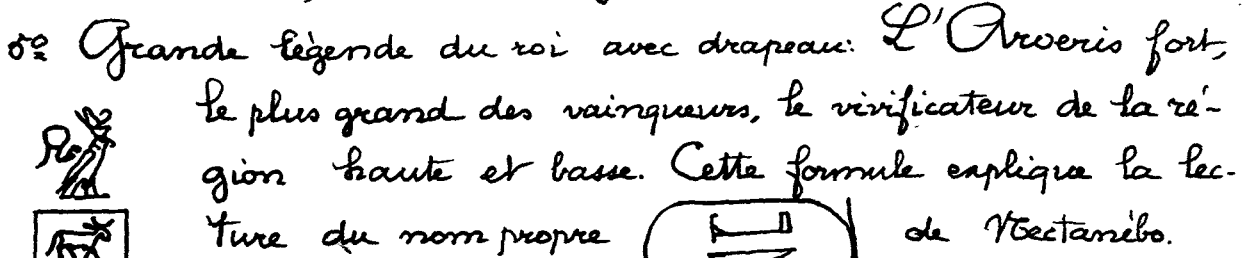 5º Grande légende du roi avec drapeau: L'Arveris fort,
le plus grand des vainqueurs, le vivificateur de la ré-
gion haute et basse. Cette formule explique la lec-
ture du nom propre de Nectanébo.